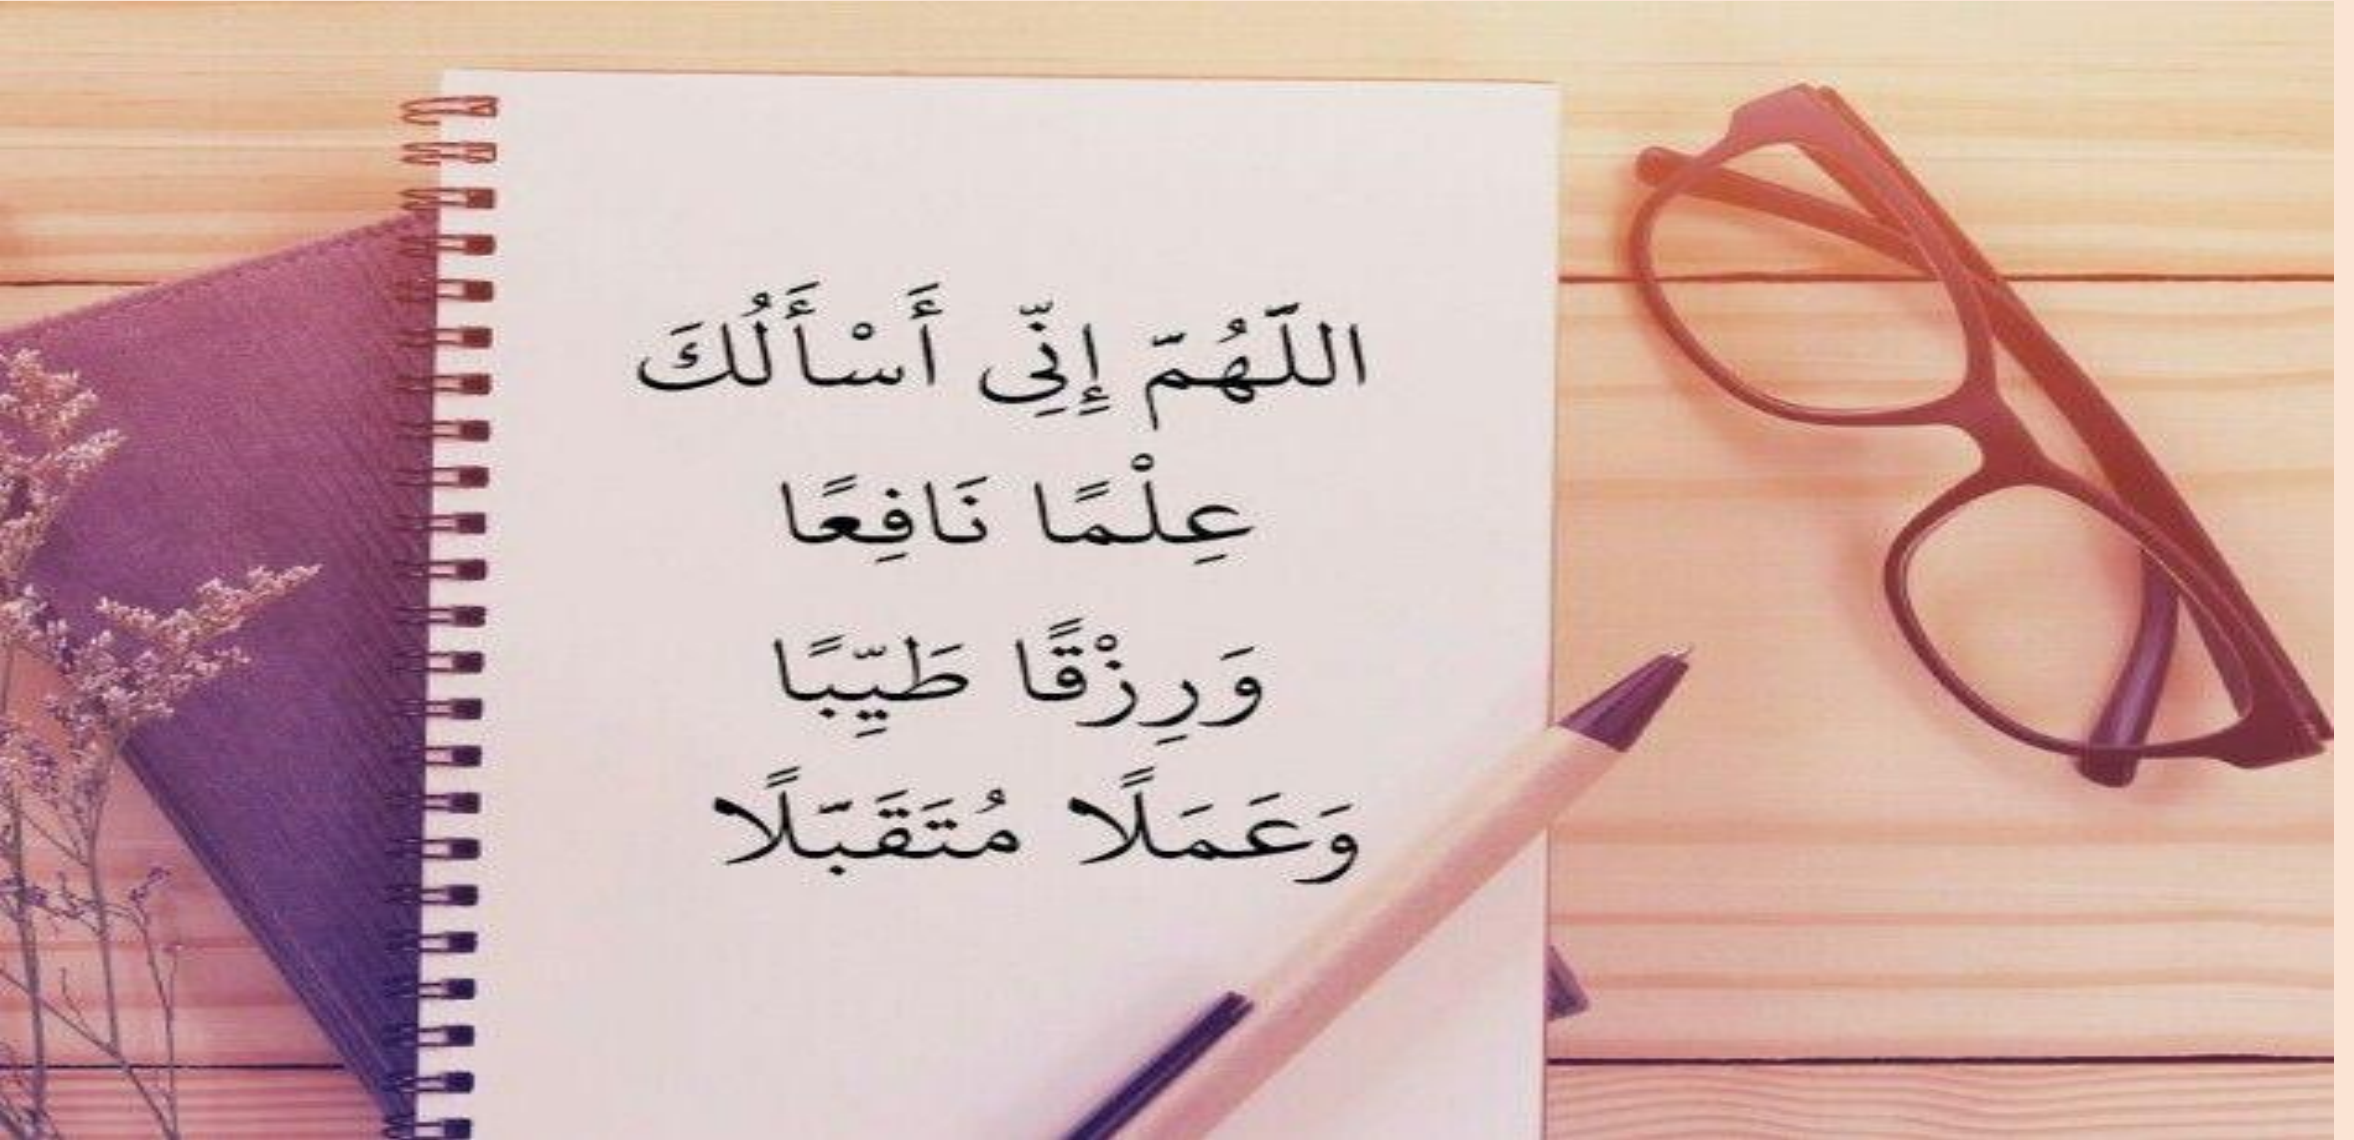 اللَّهُمّ إِنِّي أَسْأَلُكَ
عِلْمًا نَافِعًا
وَرِزْقًا طَيِّبًا
وَعَمَلًا مُتَقَبَّلًا